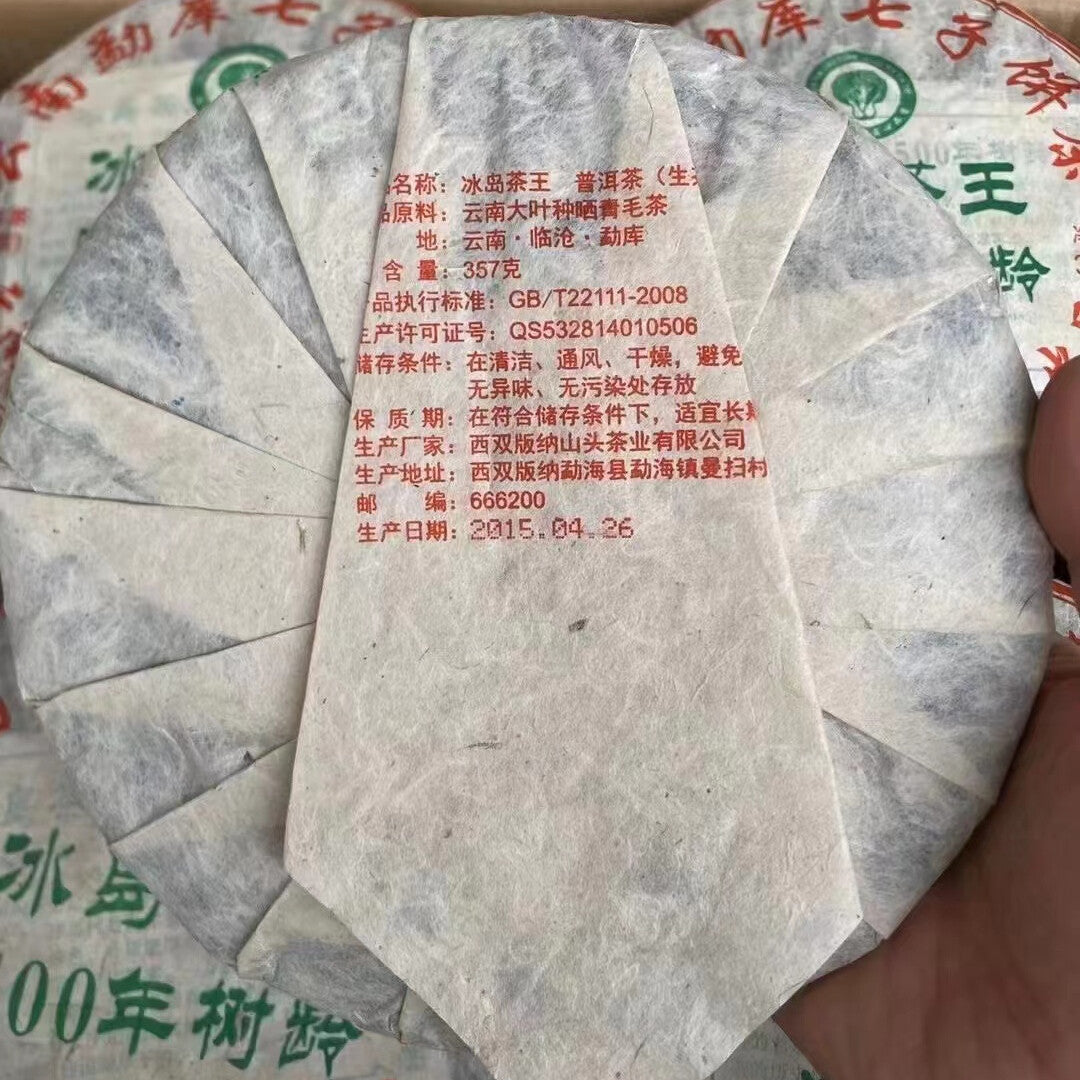 南勐库七子
库七子饼茶
冰
茶王
龄
名称：冰岛茶王 普洱茶（生
品原料：云南大叶种晒青毛茶
地：云南·临沧·勐库
含 量：357克
品执行标准：GB/T22111-2008
生产许可证号：QS532814010506
储存条件：在清洁、通风、干燥，避免
无异味、无污染处存放
保 质 期：在符合储存条件下，适宜长期
生产厂家：西双版纳山头茶业有限公司
生产地址：西双版纳勐海县勐海镇曼扫村
邮 编：666200
生产日期：2015.04.26
冰岛
00年树龄